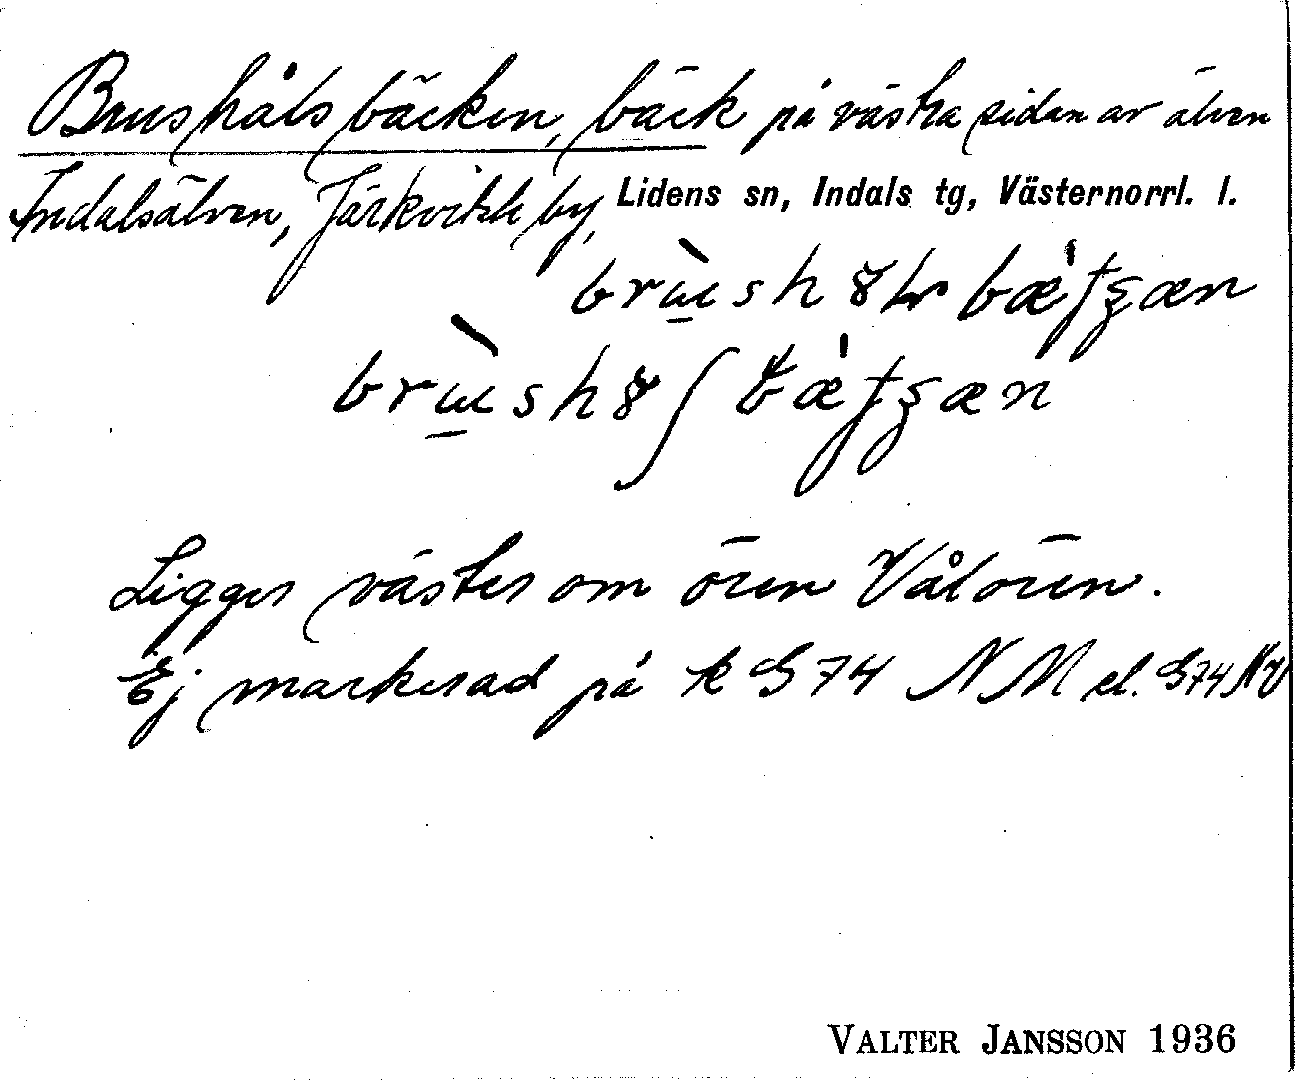 Brushålsbäcken, bäck på västra sidan av älven
Indalsälven, Järkvitsle by, Lidens sn, Indals tg, Västernorrl. l.
Ligger väster om ören Vålören.
Ej markerad på k G74 NM el. G74 NV
VALTER JANSSON 1936